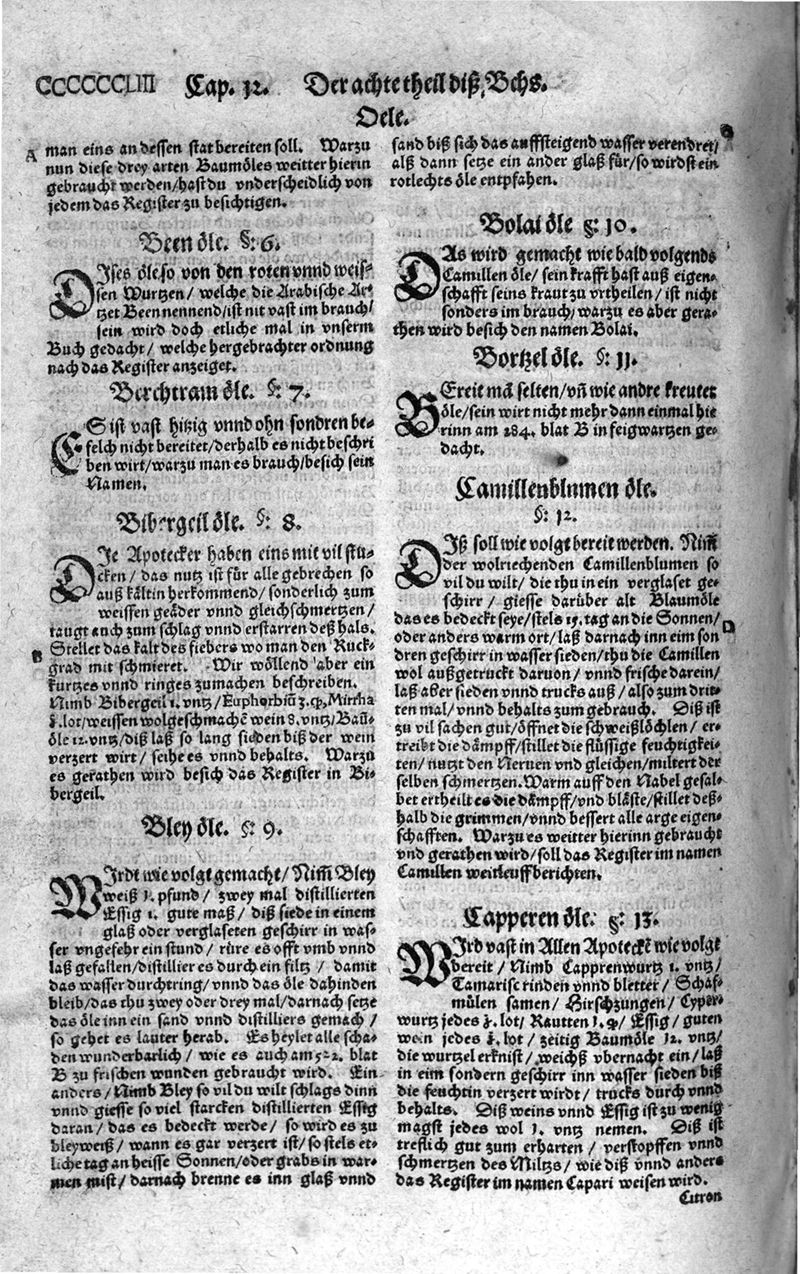 CCCCCCLIII Cap. 12. Der achte theil diß Bchs.
Oele.
A
man eins an dessen stat bereiten soll. Warzu
nun diese drey arten Baumöles weitter hierin
gebraucht werden/hast du vnderscheidlich von
jedem das Register zu besichtigen.
Been öle. §: 6.
DIses öle, so von den roten vnnd weis-
sen Wurtzen/ welche die Arabische Ar-
tzet Been nennend/ist nit vast im brauch/
sein wird doch etliche mal in vnserm
Buch gedacht/ welche hergebrachter ordnung
nach das Register anzeiget.
Berchtram öle. §: 7.
ES ist vast hitzig vnnd ohn sondren be-
felch nicht bereitet/derhalb es nicht beschri
ben wirt/warzu man es brauch/besich sein
Namen.
Bibergeil öle. §: 8.
DIe Apotecker haben eins mit vil stu-
cken/ das nutz ist für alle gebrechen so
auß kältin herkommend/ sonderlich zum
weissen geäder vnnd gleichschmertzen/
taugt auch zum schlag vnnd erstarren deß hals.
B
Stellet das kalt des fiebers wo man den Ruck-
grad mit schmieret. Wir wöllend aber ein
kurtzes vnnd ringes zumachen beschreiben.
Nimb Bibergeil 1. vntz/ Euphorbiū Mirrha
lot/weissen wolgeschmachē wein 8. vntz/Bau-
öle 12. vntz/diß laß so lang sieden biß der wein
verzert wirt/ seihe es vnnd behalts. Warzu
es gerathen wird besich das Register in Bi-
bergeil.
Bley öle. §: 9.
WIrdt wie volgt gemacht/ Nim̄ Bley
weiß pfund/ zwey mal distillierten
Essig 1. gute maß/ diß siede in einem
glaß oder verglaseten geschirr in was-
ser vngefehr ein stund/ rüre es offt vmb vnnd
laß gefallen/distillier es durch ein filtz/ damit
das wasser durchtring/ vnnd das öle dahinden
bleib/das thu zwey oder drey mal/darnach setze
das öle inn ein sand vnnd distilliers gemach/
so gehet es lauter herab. Es heylet alle scha-
den wunderbarlich/ wie es auch am 522. blat
B zu frischen wunden gebraucht wird. Ein
anders/ Nimb Bley so vil du wilt schlags dinn
vnnd giesse so viel starcken distillierten Essig
daran/ das es bedeckt werde/ so wird es zu
bleyweiß/ wann es gar verzert ist/ so stels et-
liche tag an heisse Sonnen/oder grabs in war-
men mist/ darnach brenne es inn glaß vnnd
sand biß sich das auffsteigend wasser verendret/
alß dann setze ein ander glaß für/so wirdst ein
rotlechts öle entpfahen.
Bolai öle §: 10.
DAs wird gemacht wie bald volgends
Camillen öle/ sein krafft hast auß eigen-
schafft seins kraut zu vrtheilen/ ist nicht
sonders im brauch/ warzu es aber gera-
then wird besich den namen Bolai.
Bortzel öle. §: 11.
BEreit mā selten/vn̄ wie andre kreuter
öle/sein wirt nicht mehr dann einmal hie
rinn am 284. blat B in feigwartzen ge-
dacht.
Camillenblumen öle.
§: 12.
DIß soll wie volgt bereit werden. Nim̄
der wolriechenden Camillenblumen so
vil du wilt/ die thu in ein verglaset ge-
schirr/ giesse darüber alt Blaumöle
das es bedeckt seye/stels 15. tag an die Sonnen/
D
oder anders warm ort/laß darnach inn eim son
dren geschirr in wasser sieden/thu die Camillen
wol außgetruckt daruon/ vnnd frische darein/
laß aber sieden vnnd trucks auß/ also zum drit-
ten mal/ vnnd behalts zum gebrauch. Diß ist
zu vil sachen gut/öffnet die schweißlöchlen/ er-
treibt die dämpff/stillet die flüssige feuchtigkei-
ten/ nutzt den Neruen vnd gleichen/miltert der
selben schmertzen. Warm auff den Nabel gesal-
bet ertheilt es die dämpff/vnd bläste/stillet deß-
halb die grimmen/ vnnd bessert alle arge eigen-
schafften. Warzu es weitter hierinn gebraucht
vnd gerathen wird/soll das Register im namen
Camillen weitleuff berichten.
Capperen öle. §: 13.
WIrd vast in Allen Apoteckē wie volgt
bereit/ Nimb Capprenwurtz 1. vntz/
Tamarisc rinden vnnd bletter/ Schaf-
mülen samen/ Hirschzungen/ Cyper-
wurtz jedes lot/ Rautten Essig/ guten
wein jedes lot/ zeitig Baumöle 12. vntz/
die wurtzel erknist/ weichß vbernacht ein/ laß
in eim sondern geschirr inn wasser sieden biß
die feuchtin verzert wirdt/ trucks durch vnnd
behalts. Diß weins vnnd Essig ist zu wenig
magst jedes wol 1. vntz nemen. Diß ist
treflich gut zum erharten/ verstopffen vnnd
schmertzen des Miltzs/ wie diß vnnd anders
das Register im namen Capari weisen wird.
Citron